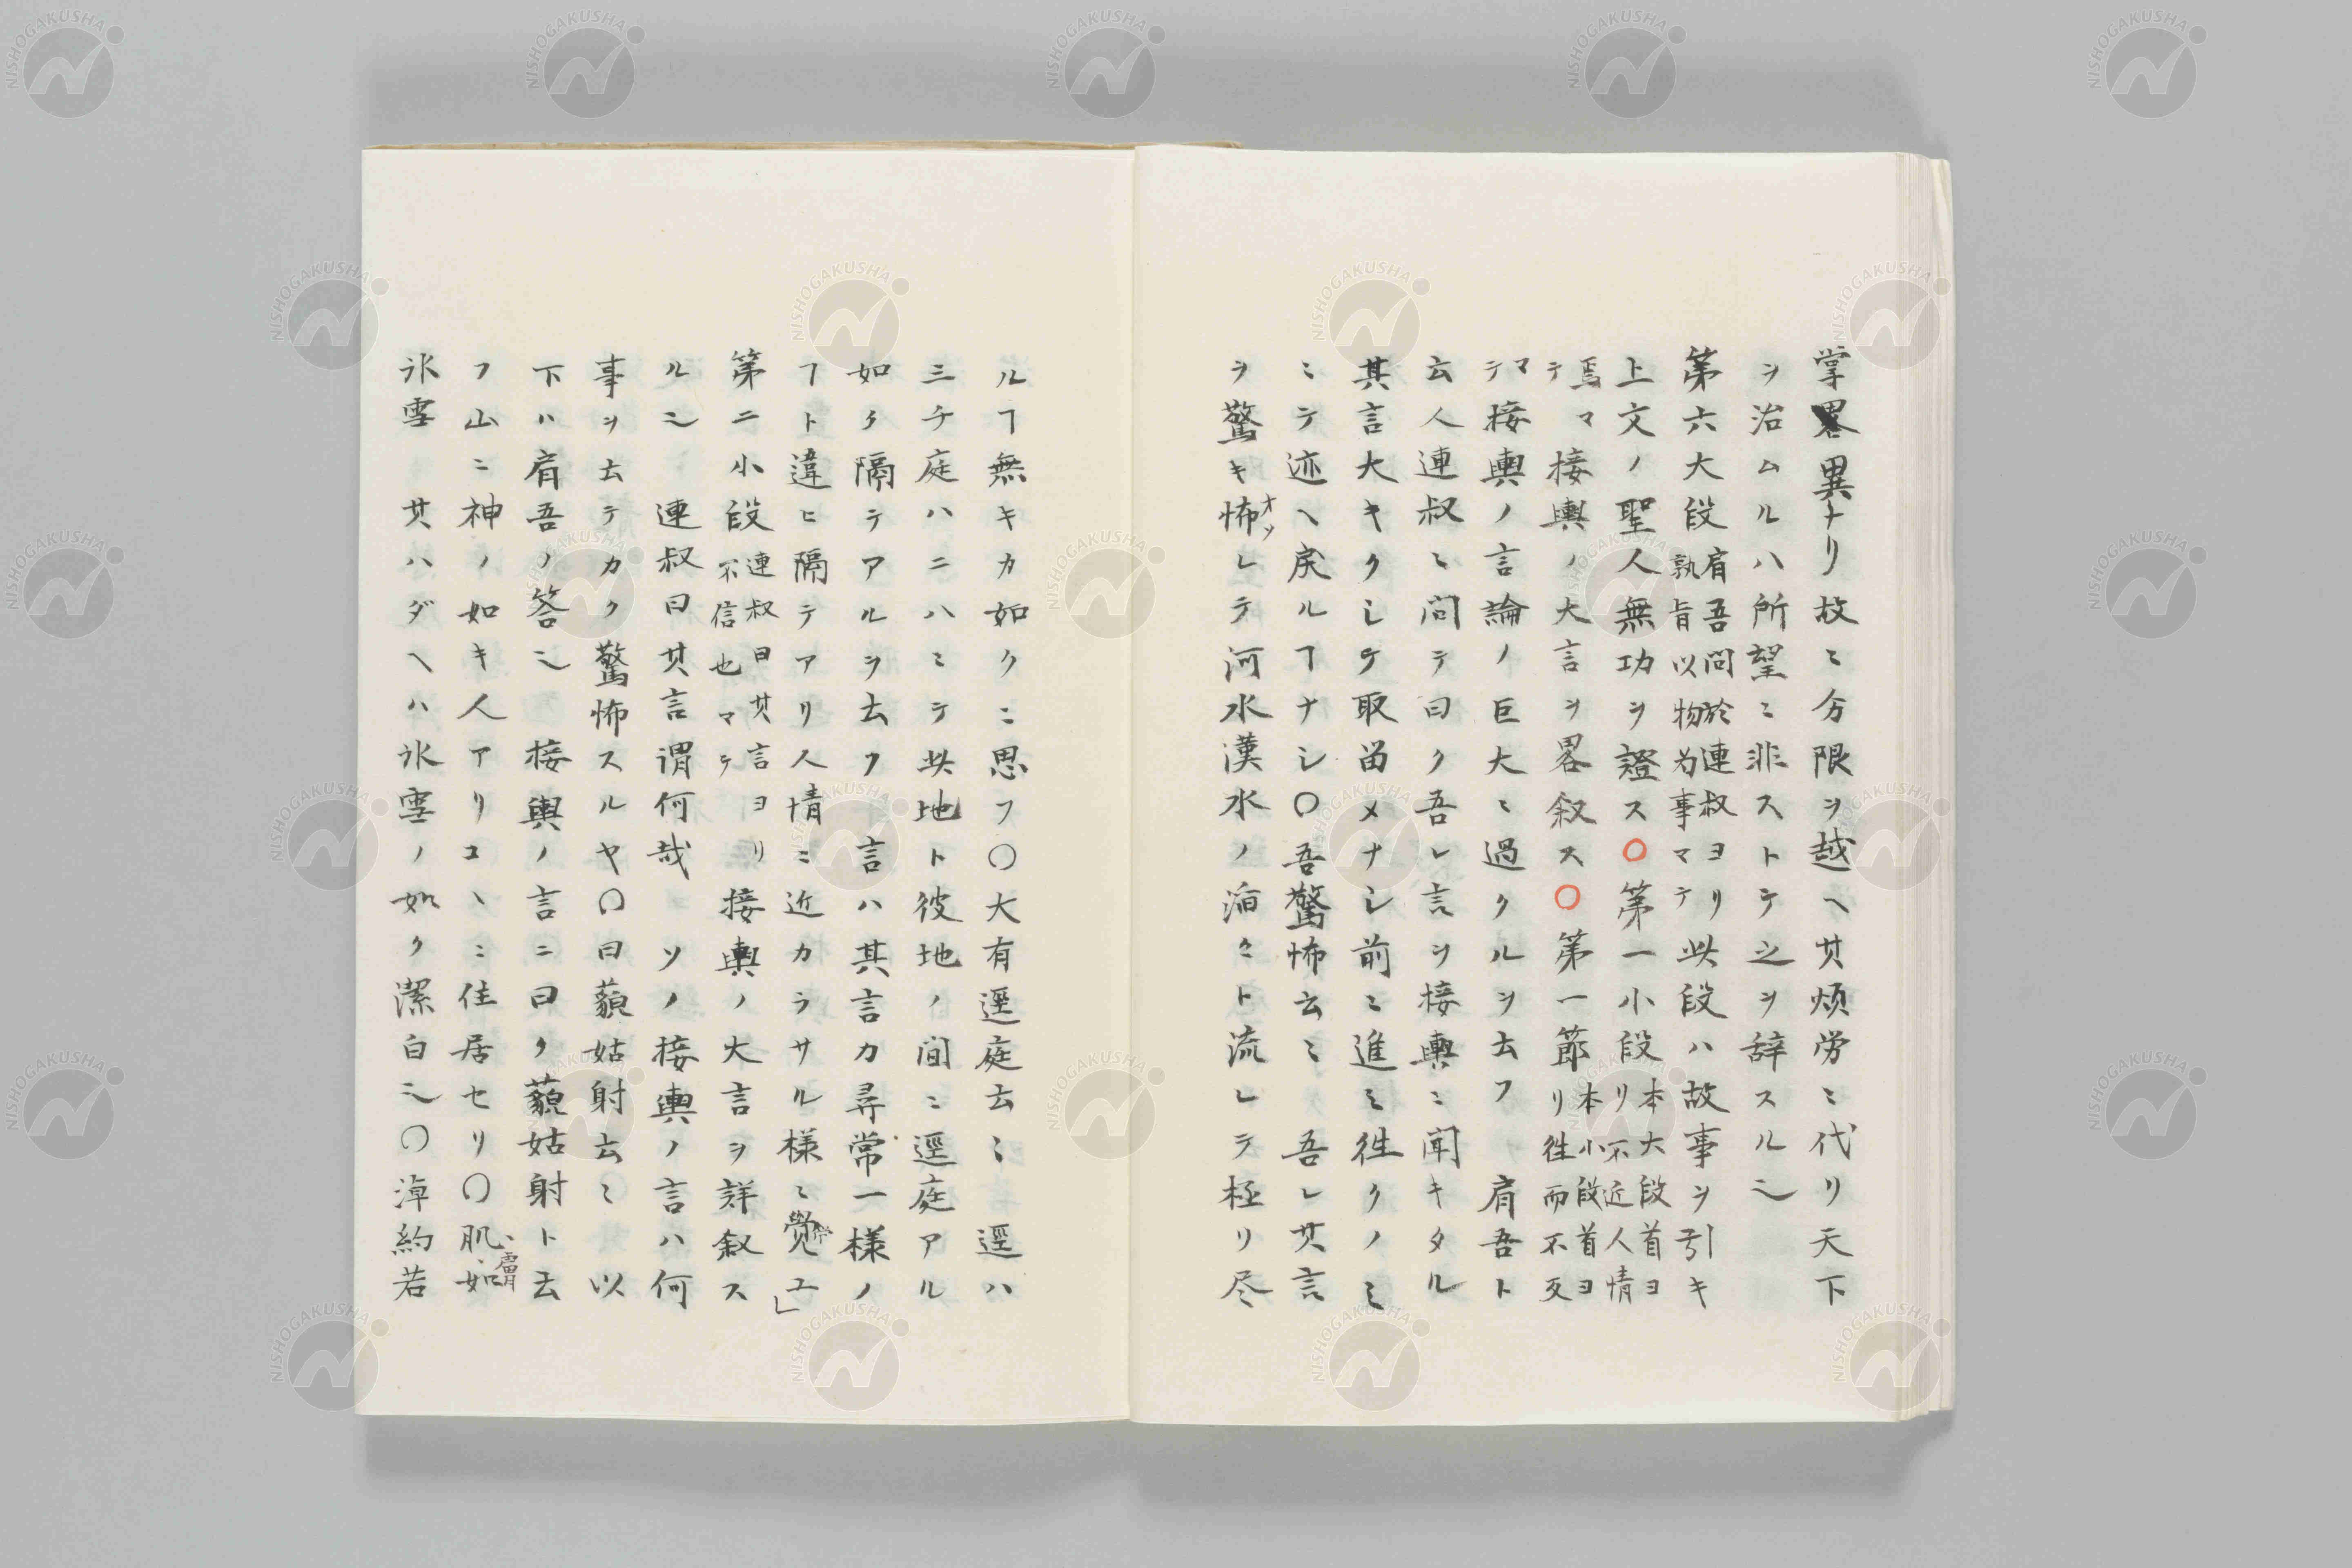 掌畧異ナリ故ニ分限ヲ越ヘ其煩労ニ代リ天下
ヲ治ムルハ所望ニ非ストテ之ヲ辞スルﾆ
第六大段肩吾問於連叔ヨリ孰肯以物為事マテ此段ハ故事ヲ引キ
上文ノ聖人無功ヲ證ス○第一小段本大段首ヨリ不近人情
焉マテ接輿ノ大言ヲ畧叙ス○第一節本小段首ヨリ往而不反
マテ接輿ノ言論ノ巨大ニ過クルヲ云フ 肩吾ト
云人連叔ニ問テ曰ク吾レ言ヲ接輿ニ聞キタル
其言大キクシテ取留メナシ前ニ進ミ往クノミ
ニテ迹ヘ戻ルヿナシ○吾驚怖云ミ 吾レ其言
ヲ驚キ怖オソレテ河水漢水ノ滔々ト流レテ極リ尽
ルヿ無キカ如クニ思フ○大有逕庭云ミ 逕ハ
三チ庭ハニハミテ此地ト彼地ノ間ニ逕庭アル
如ク隔テアルヲ云ク 言ハ其言カ尋常一様ノ
ヿト違ヒ隔テアリ人情ニ近カラサル様ニ覚ユ」
第二小段連叔曰其言ヨリ不信也マテ 接輿ノ大言ヲ詳叙ス
ル也 連叔曰其言謂何哉 ソノ接輿ノ言ハ何
事ヲ云テカク驚怖スルヤ○曰藐姑射云ミ 以
下ハ肩吾ノ答也 接輿ノ言ニ曰ク藐姑射ト云
フ山ニ神ノ如キ人アリコヽニ住居セリ○肌膚如
氷雪 其ハダヘハ氷雪ノ如ク潔白也○淖約若